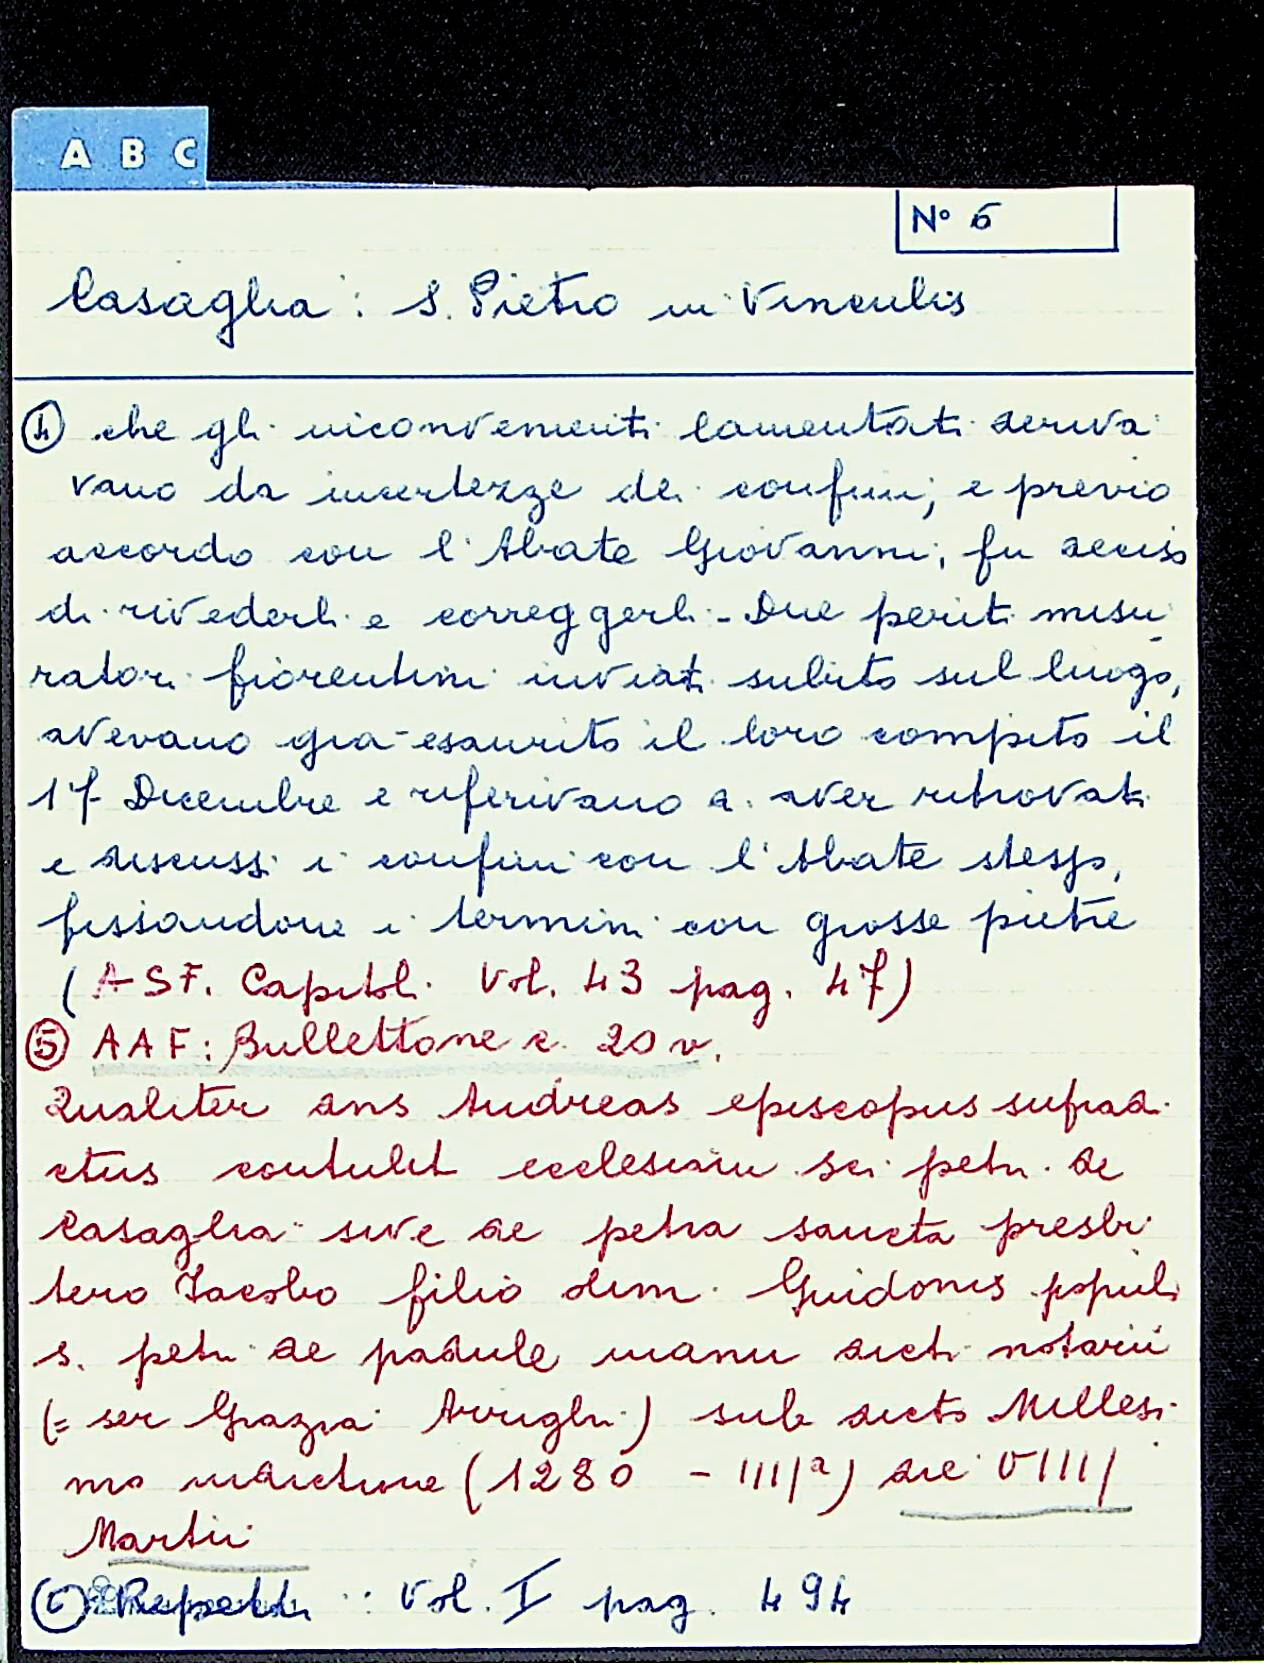 A B C
N° 6
Casaglia: S. Pietro in Vinculis
④ che gli inconvenienti lamentati deriva
vano da incertezze dei confini; e previo
accordo con l'Abate Giovanni, fu deciso
di rivederli e correggerli - Due periti misu
ratori fiorentini inviati subito sul luogo,
avevano già esaurito il loro compito il
17 Dicembre e riferivano di aver ritrovati
e discussi i confini con l'Abate stesso,
fissandone i termini con grosse pietre
(ASF. Capitol. Vol. 43 pag. 47)
⑤ AAF: Bullettone c. 20 v.
Qualiter dns Andreas episcopus suprad.
ctus contulit ecclesiam sci petri de
Casaglia sive de petra sancta presbi
tero Iacobo filio olim Guidonis populi
s. petri de padule manu dicti notarii
(= ser Grazia Arrighi) sub dicto Millesi
mo indictione (1280 - IIIIª) die VIIII
Martii
⑥ Repetti: Vol. I pag. 494